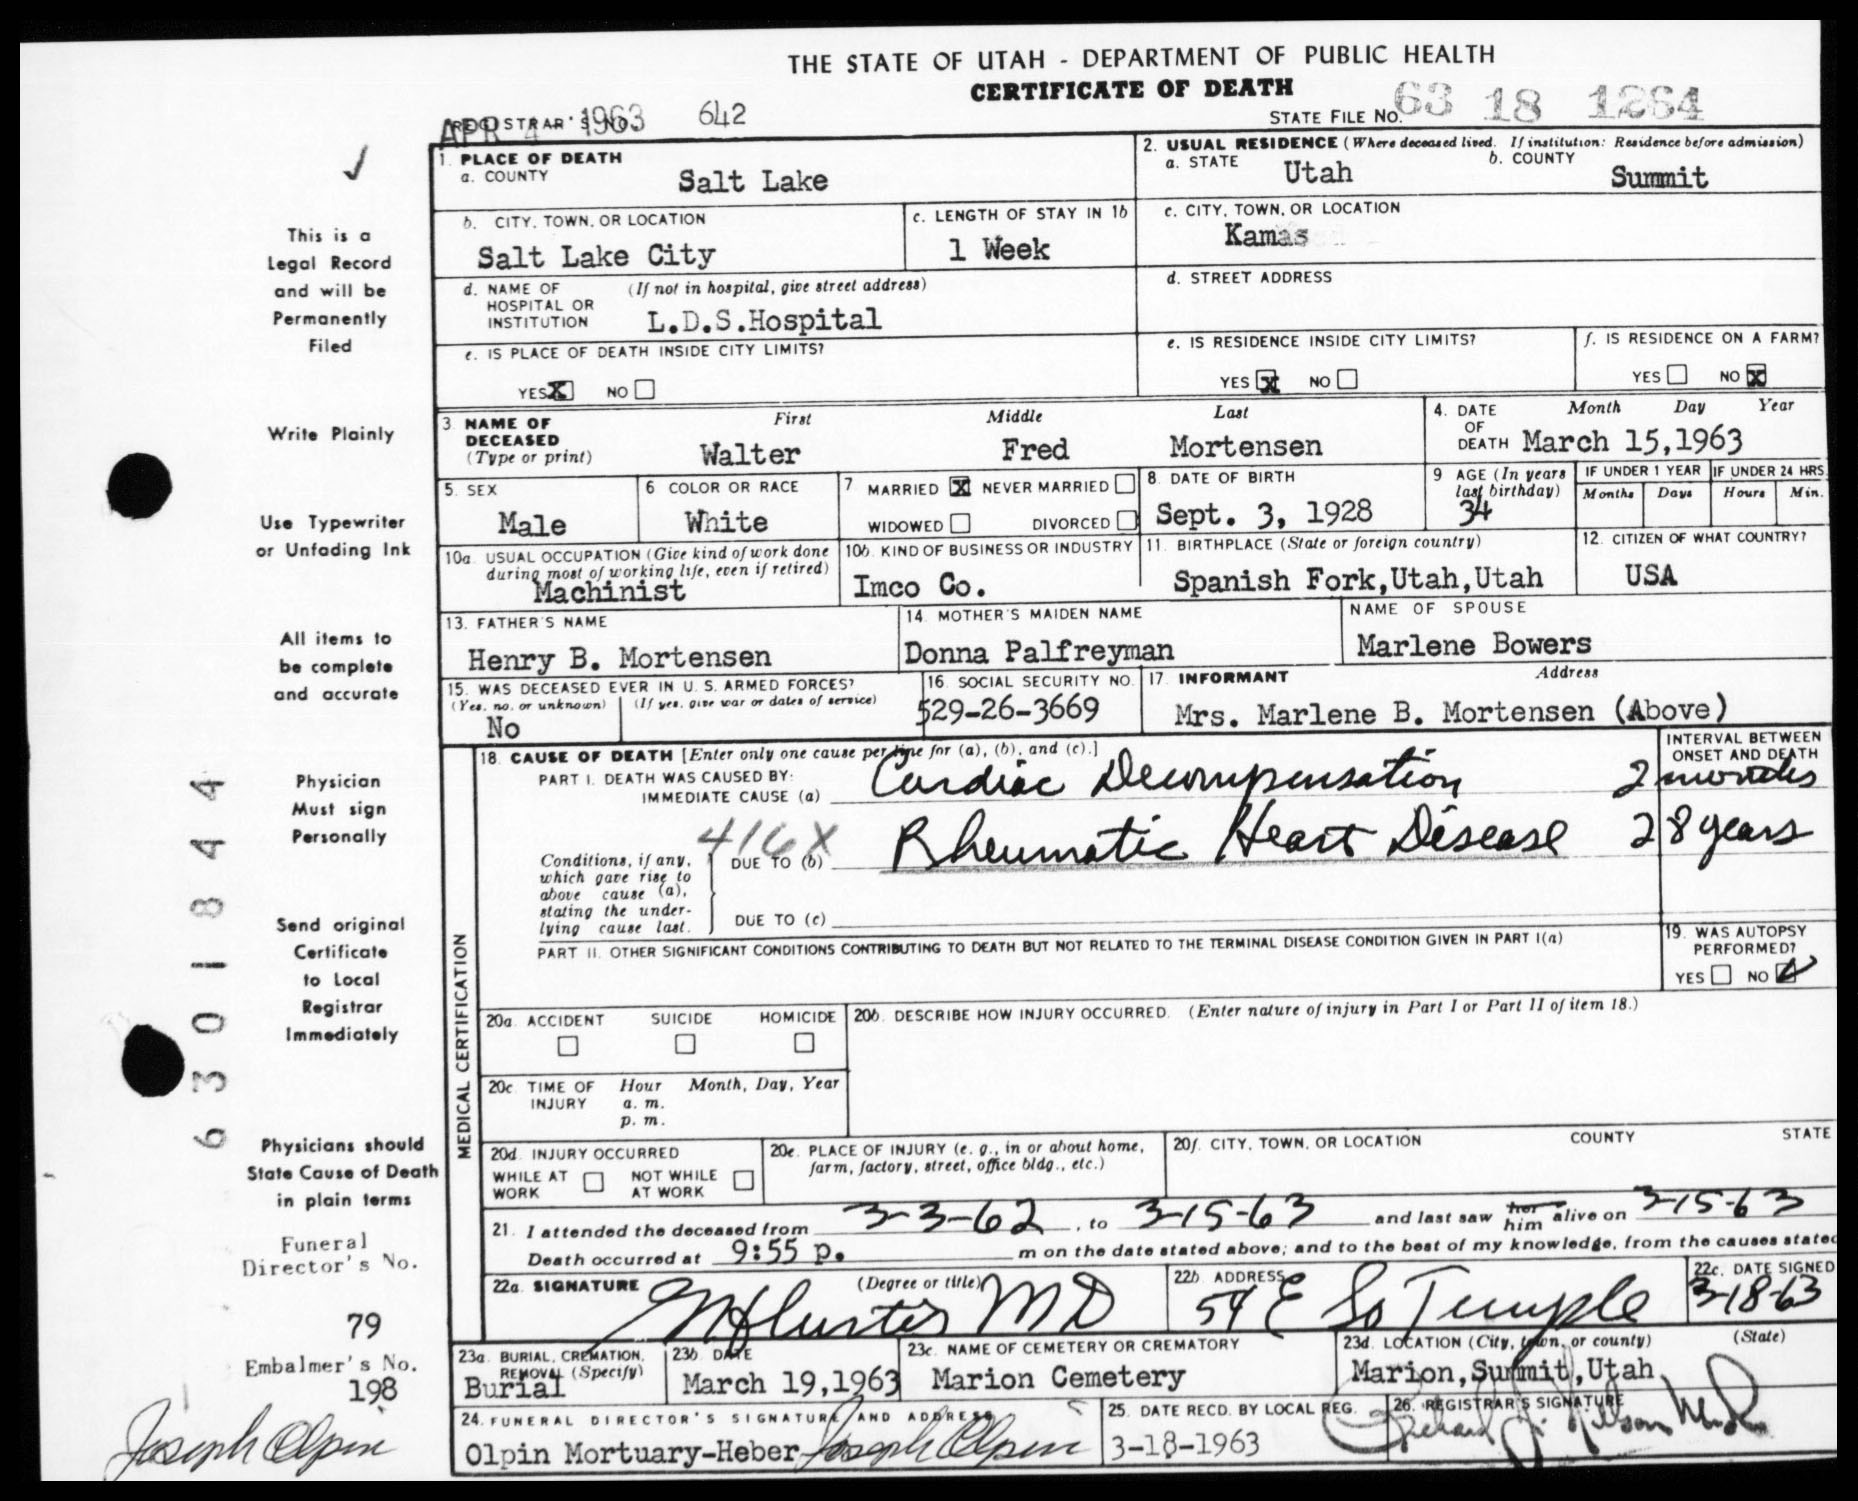 THE STATE OF UTAH - DEPARTMENT OF PUBLIC HEALTH
CERTIFICATE OF DEATH
REGISTRAR'S NO. 642
APR 4 1963
STATE FILE NO. 63 18 1264
1. PLACE OF DEATH
a. COUNTY
Salt Lake
2. USUAL RESIDENCE (Where deceased lived. If institution: Residence before admission)
a. STATE Utah b. COUNTY Summit
b. CITY, TOWN, OR LOCATION
Salt Lake City
c. LENGTH OF STAY IN 1b
1 Week
c. CITY, TOWN, OR LOCATION
Kamas
d. NAME OF HOSPITAL OR INSTITUTION (If not in hospital, give street address)
L.D.S.Hospital
d. STREET ADDRESS
e. IS PLACE OF DEATH INSIDE CITY LIMITS?
YES X NO
e. IS RESIDENCE INSIDE CITY LIMITS?
YES X NO
f. IS RESIDENCE ON A FARM?
YES NO X
3 NAME OF DECEASED (Type or print)
First Middle Last
Walter Fred Mortensen
4. DATE OF DEATH
Month Day Year
March 15,1963
5. SEX
Male
6 COLOR OR RACE
White
7 MARRIED X NEVER MARRIED
WIDOWED DIVORCED
8. DATE OF BIRTH
Sept. 3, 1928
9 AGE (In years last birthday)
34
IF UNDER 1 YEAR
Months Days
IF UNDER 24 HRS.
Hours Min.
10a. USUAL OCCUPATION (Give kind of work done during most of working life, even if retired)
Machinist
10b. KIND OF BUSINESS OR INDUSTRY
Imco Co.
11. BIRTHPLACE (State or foreign country)
Spanish Fork,Utah,Utah
12. CITIZEN OF WHAT COUNTRY?
USA
13. FATHER'S NAME
Henry B. Mortensen
14. MOTHER'S MAIDEN NAME
Donna Palfreyman
NAME OF SPOUSE
Marlene Bowers
15. WAS DECEASED EVER IN U. S. ARMED FORCES?
(Yes, no, or unknown) (If yes, give war or dates of service)
No
16. SOCIAL SECURITY NO.
529-26-3669
17. INFORMANT Address
Mrs. Marlene B. Mortensen (Above)
MEDICAL CERTIFICATION
18. CAUSE OF DEATH [Enter only one cause per line for (a), (b), and (c).]
INTERVAL BETWEEN ONSET AND DEATH
PART I. DEATH WAS CAUSED BY:
IMMEDIATE CAUSE (a) Cardiac Decompensation 2 months
416X
Conditions, if any, which gave rise to above cause (a), stating the underlying cause last.
DUE TO (b) Rheumatic Heart Disease 28 years
DUE TO (c)
PART II. OTHER SIGNIFICANT CONDITIONS CONTRIBUTING TO DEATH BUT NOT RELATED TO THE TERMINAL DISEASE CONDITION GIVEN IN PART I(a)
19. WAS AUTOPSY PERFORMED?
YES NO
20a. ACCIDENT SUICIDE HOMICIDE
20b. DESCRIBE HOW INJURY OCCURRED. (Enter nature of injury in Part I or Part II of item 18.)
20c. TIME OF INJURY Hour Month, Day, Year
a. m.
p. m.
20d. INJURY OCCURRED
WHILE AT WORK NOT WHILE AT WORK
20e. PLACE OF INJURY (e. g., in or about home, farm, factory, street, office bldg., etc.)
20f. CITY, TOWN, OR LOCATION COUNTY STATE
21. I attended the deceased from 3-3-62, to 3-15-63 and last saw her him alive on 3-15-63
Death occurred at 9:55 p. m on the date stated above; and to the best of my knowledge, from the causes stated
22a. SIGNATURE (Degree or title)
MD
22b. ADDRESS
54 E So Temple
22c. DATE SIGNED
3-18-63
23a. BURIAL, CREMATION, REMOVAL (Specify)
Burial
23b. DATE
March 19,1963
23c. NAME OF CEMETERY OR CREMATORY
Marion Cemetery
23d. LOCATION (City, town, or county) (State)
Marion,Summit,Utah
24. FUNERAL DIRECTOR'S SIGNATURE AND ADDRESS
Olpin Mortuary-Heber Joseph Olpin
25. DATE RECD. BY LOCAL REG.
3-18-1963
26. REGISTRAR'S SIGNATURE
This is a
Legal Record
and will be
Permanently
Filed
Write Plainly
Use Typewriter
or Unfading Ink
All items to
be complete
and accurate
Physician
Must sign
Personally
Send original
Certificate
to Local
Registrar
Immediately
Physicians should
State Cause of Death
in plain terms
Funeral
Director's No.
79
Embalmer's No.
198
Joseph Olpin
6301844